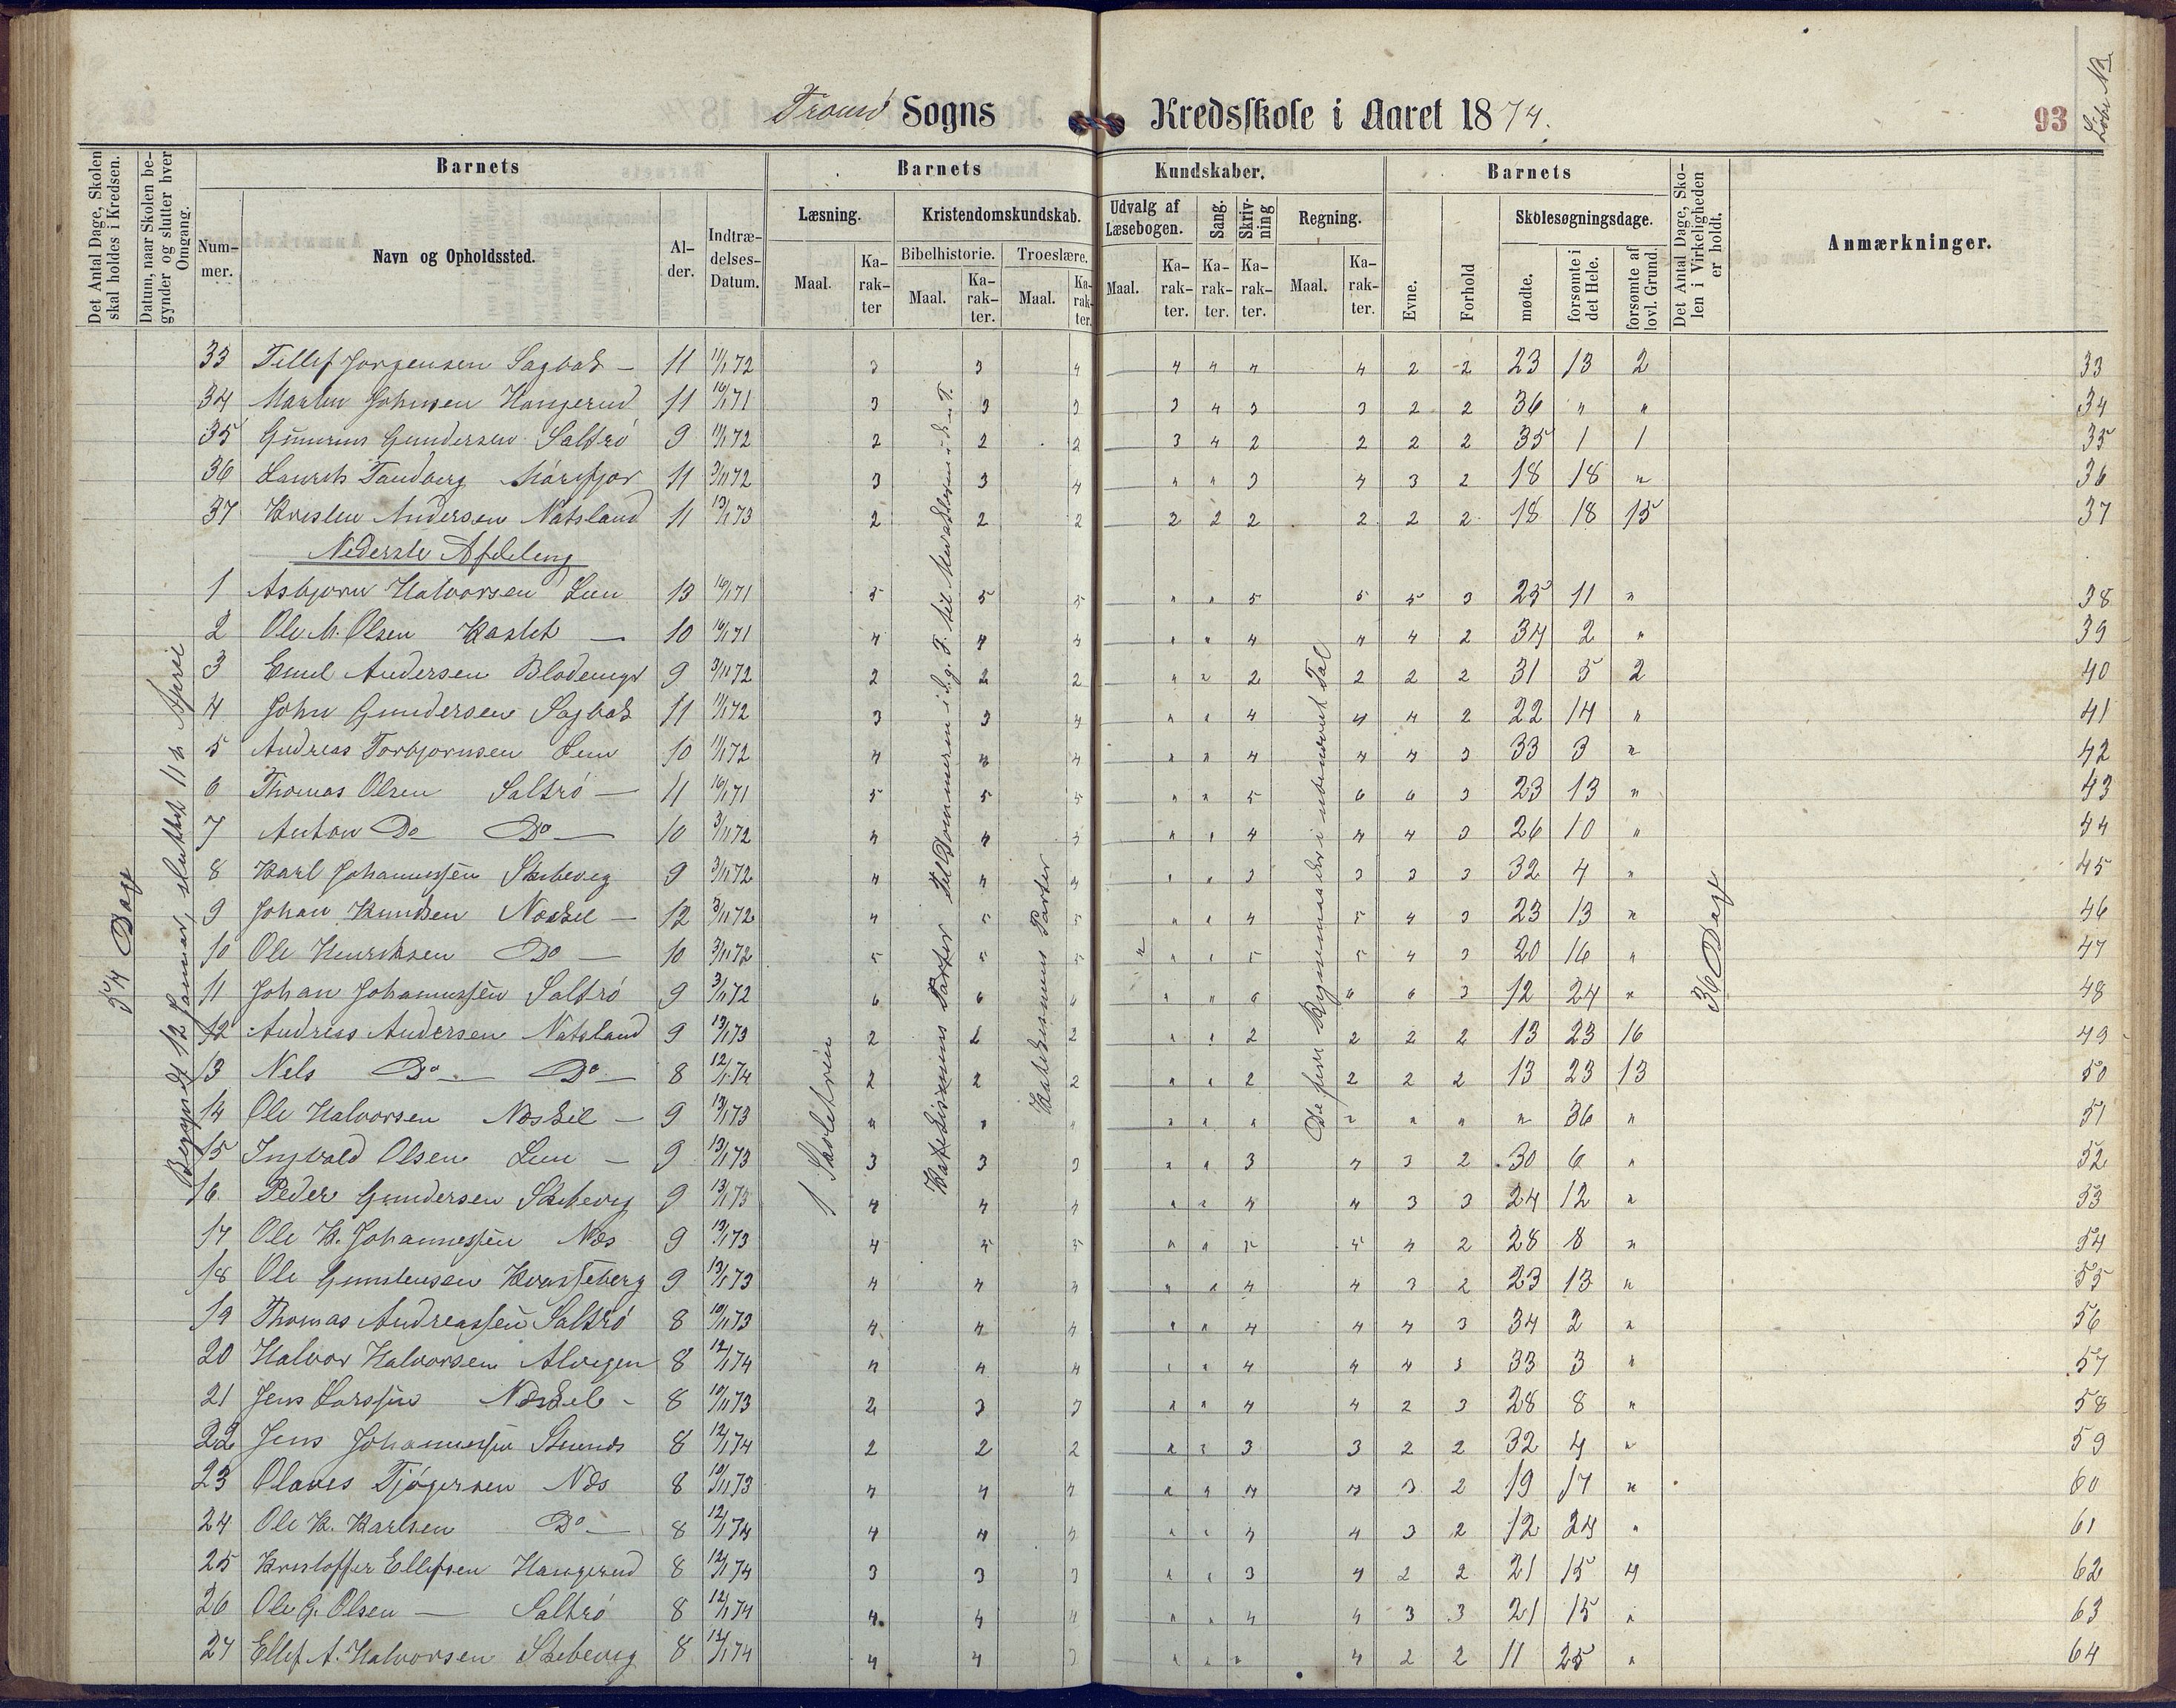 Tromö Sogns Kredsskole i Aaret 1874.
93
Løbe No
Det Antal Dage, Skolen skal holdes i Kredsen.
Datum, naar Skolen begynder og slutter hver Omgang.
Barnets
Nummer.
Navn og Opholdssted.
Alder.
Indtrædelses-Datum.
Barnets Kundskaber.
Læsning.
Maal.
Karakter
Kristendomskundskab.
Bibelhistorie.
Maal.
Karakter.
Troeslære.
Maal.
Karakter.
Udvalg af Læsebogen.
Maal.
Karakter.
Sang.
Karakter.
Skrivning
Karakter.
Regning.
Maal.
Karakter.
Barnets
Evne.
Forhold
Skolesøgningsdage.
mødte.
forsømte i det Hele.
forsømte af lovl. Grund.
Det Antal Dage, Skolen i Virkeligheden er holdt.
Anmærkninger.
54 Dage
Begyndt 12 Januar, sluttet 11te April
1 Skoletrin
Katekismus Parter
Katekismus Parter
De fire Regnemaader i ubenævnt Tal
36 Dage
33 Tellef Jorgensen Sagbak – 11 11/1 72 3 3 4 4 4 4 4 2 2 23 13 2 33
34 Martin Johnsen Hangerud 11 16/1 71 3 3 3 3 4 3 3 2 2 36 " " 34
35 Gunerius Gundersen Saltrö 9 11/1 72 2 2 2 3 4 2 2 2 2 35 1 1 35
36 Laurits Tandberg Mörefjær 11 3/11 72 3 3 4 " " 3 4 3 2 18 18 " 36
37 Kristen Andersen Natsland 11 13/1 73 2 2 2 2 2 2 2 2 2 18 18 15 37
Nederste Afdeling
1 Asbjorn Halvorsen Lun 13 16/1 71 5 5 5 " " 5 5 5 3 25 11 " 38
2 Ole M. Olsen Kastet — 10 16/1 71 4 4 4 " " 4 4 4 2 34 2 " 39
3 Emil Andersen 9 3/11 72 2 2 2 " " 2 2 2 2 31 5 2 40
4 John Gundersen Sagbak 11 11/1 72 3 3 4 " " 4 4 4 2 22 14 " 41
5 Andreas Torbjornsen Lun 10 11/1 72 4 4 4 " " 4 4 4 3 33 3 " 42
6 Thomas Olsen Saltrö — 11 16/1 71 5 5 5 " " 5 6 6 3 23 13 " 43
7 Anton Do Do — 10 3/11 72 4 4 5 " " 4 4 4 3 26 10 " 44
8 Karl Johannessen Skibevig 9 3/11 72 4 4 4 " " 3 3 3 3 32 4 " 45
9 Johan Knudsen Næskil — 12 3/11 72 4 5 5 " " 4 5 4 3 23 13 " 46
10 Ole Henriksen Do — 10 3/11 72 5 5 5 " " " 5 5 4 3 20 16 " 47
11 Johan Johannessen Saltrö 9 3/11 72 6 6 6 " " 6 6 6 3 12 24 " 48
12 Andreas Andersen Natsland 9 13/1 73 2 2 2 " " 2 2 2 2 13 23 16 49
13 Nels Do — Do — 8 12/1 74 2 2 2 " " 2 2 2 2 13 23 13 50
14 Ole Halvorsen Næskil — 9 13/1 73 " " " " " " " " " " 36 " 51
15 Ingvald Olsen Lun — 9 13/1 73 3 3 3 " " 3 4 3 2 30 6 " 52
16 Peder Gundersen Skibevig 9 13/1 73 4 4 4 " " 4 4 3 3 24 12 " 53
17 Ole K. Johannessen Næs 9 13/1 73 4 5 5 " " 5 5 4 2 28 8 " 54
18 Ole Gunstensen Kvasteberg 9 13/1 73 4 4 4 " " 4 4 3 2 23 13 " 55
19 Thomas Andreassen Saltrö 8 10/11 73 4 4 4 " " 4 4 4 3 34 2 " 56
20 Halvor Halvorsen Alvegen 8 12/1 74 4 4 4 " " 4 4 4 3 33 3 " 57
21 Jens Larssen Næskil – 8 10/11 73 2 3 3 " " 4 4 2 3 28 8 " 58
22 Jens Johannessen 8 12/1 74 2 2 2 " " 3 3 2 2 32 4 " 59
23 Olaves Tjögersen Næs 8 10/11 73 4 4 4 " " 4 4 3 2 19 17 " 60
24 Ole K. Karlsen Do — 8 12/1 74 4 4 4 " " 4 4 3 2 12 24 " 61
25 Kristoffer Ellefsen Hangerud 8 12/1 74 3 3 3 " " 3 4 2 2 21 15 4 62
26 Ole G. Olsen — Saltrö 8 12/1 74 4 4 4 " " 4 4 3 3 21 15 " 63
27 Ellef A. Halvorsen Skibevig 8 12/1 74 4 4 3 " " " 4 2 2 11 25 " 64